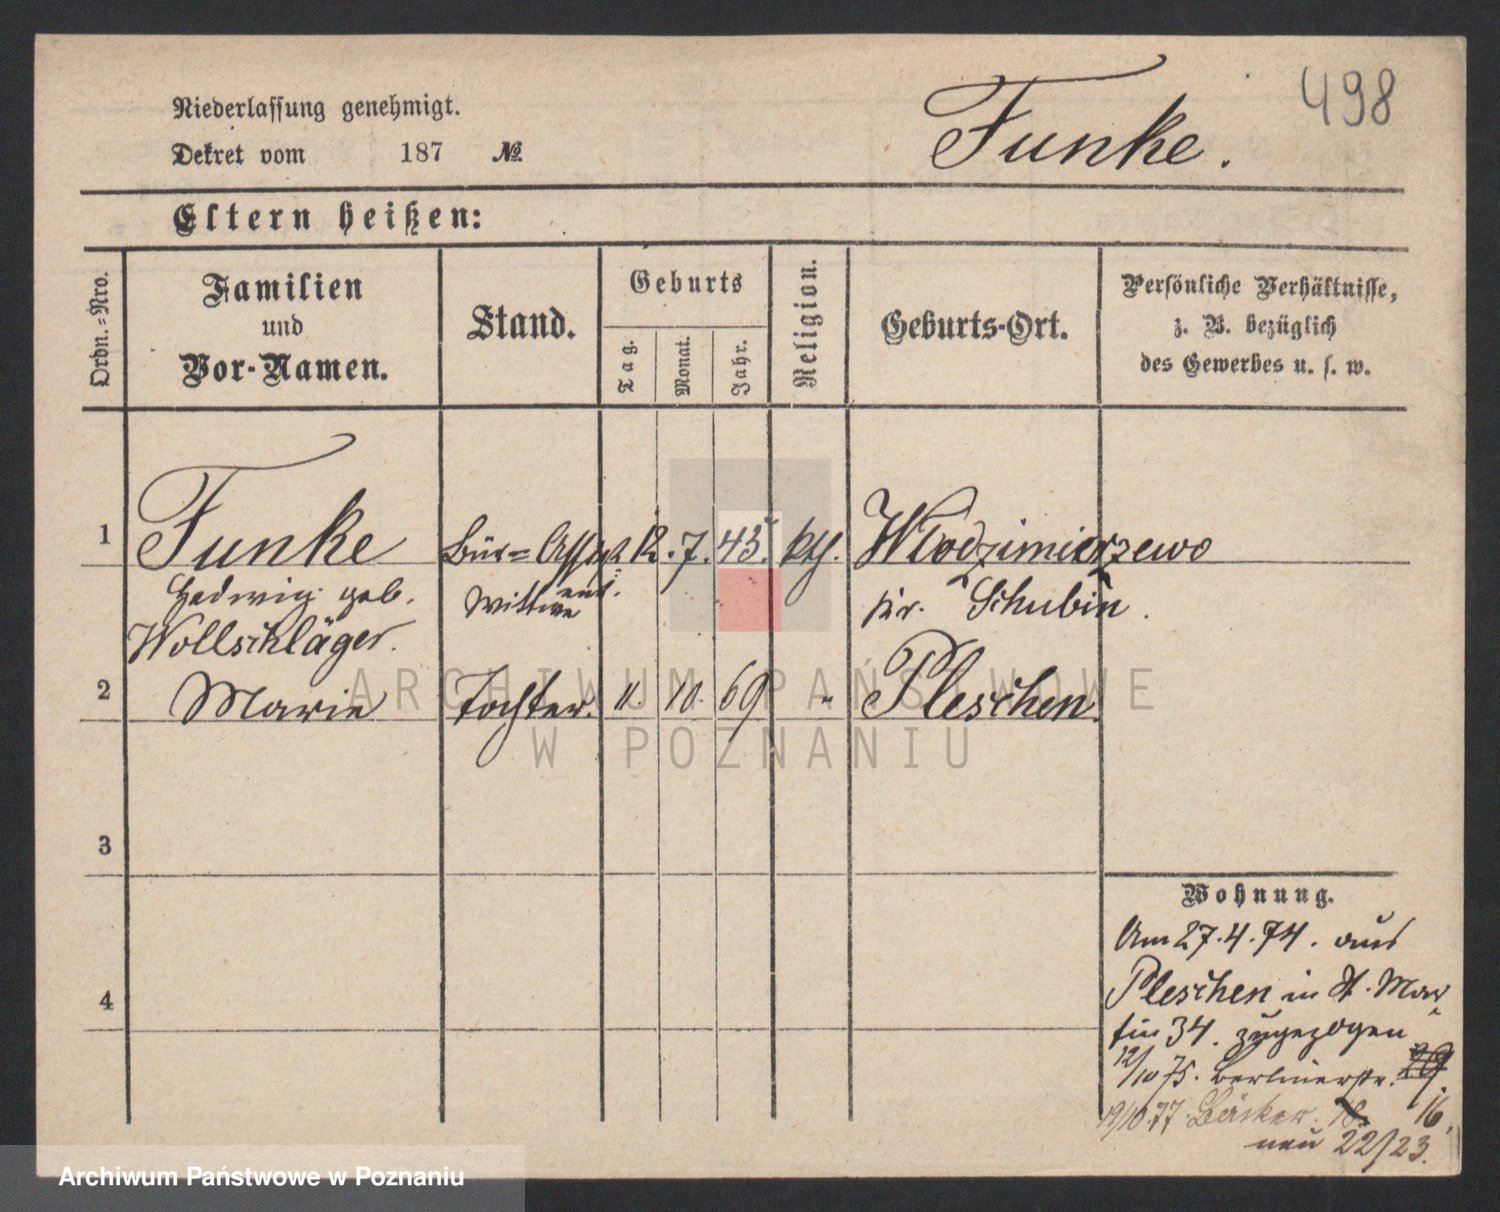 498
Niederlassung genehmigt.
Dekret vom 187 №
Funke.
Eltern heißen:
Ordn.-Nro.
Familien
und
Vor-Namen.
Stand.
Geburts
Tag.
Monat.
Jahr.
Religion.
Geburts-Ort.
Persönliche Verhältnisse,
z. B. bezüglich
des Gewerbes u. s. w.
1 Funke Bür= Assist 12. 7. 43. kth. Wlodzimierzewo
Hedwig geb. ent. Wittwe Kr. Schubin.
Wollschläger.
2 Marie Tochter. 11. 10. 69 " Pleschen.
3
4
Wohnung.
Am 27.4.74. aus
Pleschen in St. Mar
tin 34. zugezogen
12/10 75. Berlinerstr. 16.
19/10.77. Bäcker
neu 22/23.
ARCHIWUM PAŃSTWOWE
W POZNANIU
Archiwum Państwowe w Poznaniu